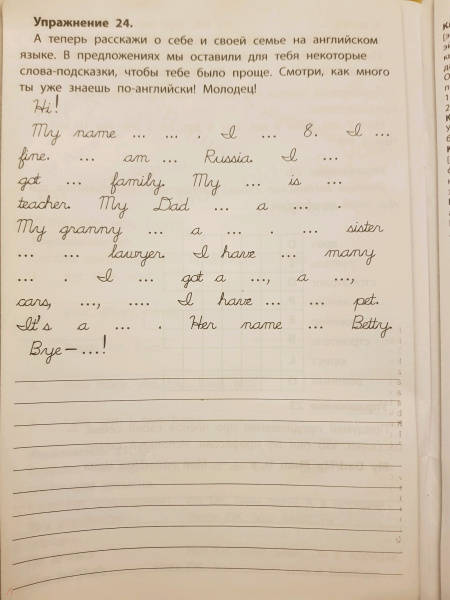 Упражнение 24.
А теперь расскажи о себе и своей семье на английском
языке. В предложениях мы оставили для тебя некоторые
слова-подсказки, чтобы тебе было проще. Смотри, как много
ты уже знаешь по-английски! Молодец!
Hi!
My name ... ... . I ... 8. I ...
fine. ... am ... Russia. I ...
got ... family. My ... is ...
teacher. My Dad ... a ... .
My granny ... a ... . ... sister
... ... lawyer. I have ... many
... . I ... got a ..., a ...,
cars, ..., .... I have ... ... pet.
It's a ... . Her name ... Betty.
Bye – ...!